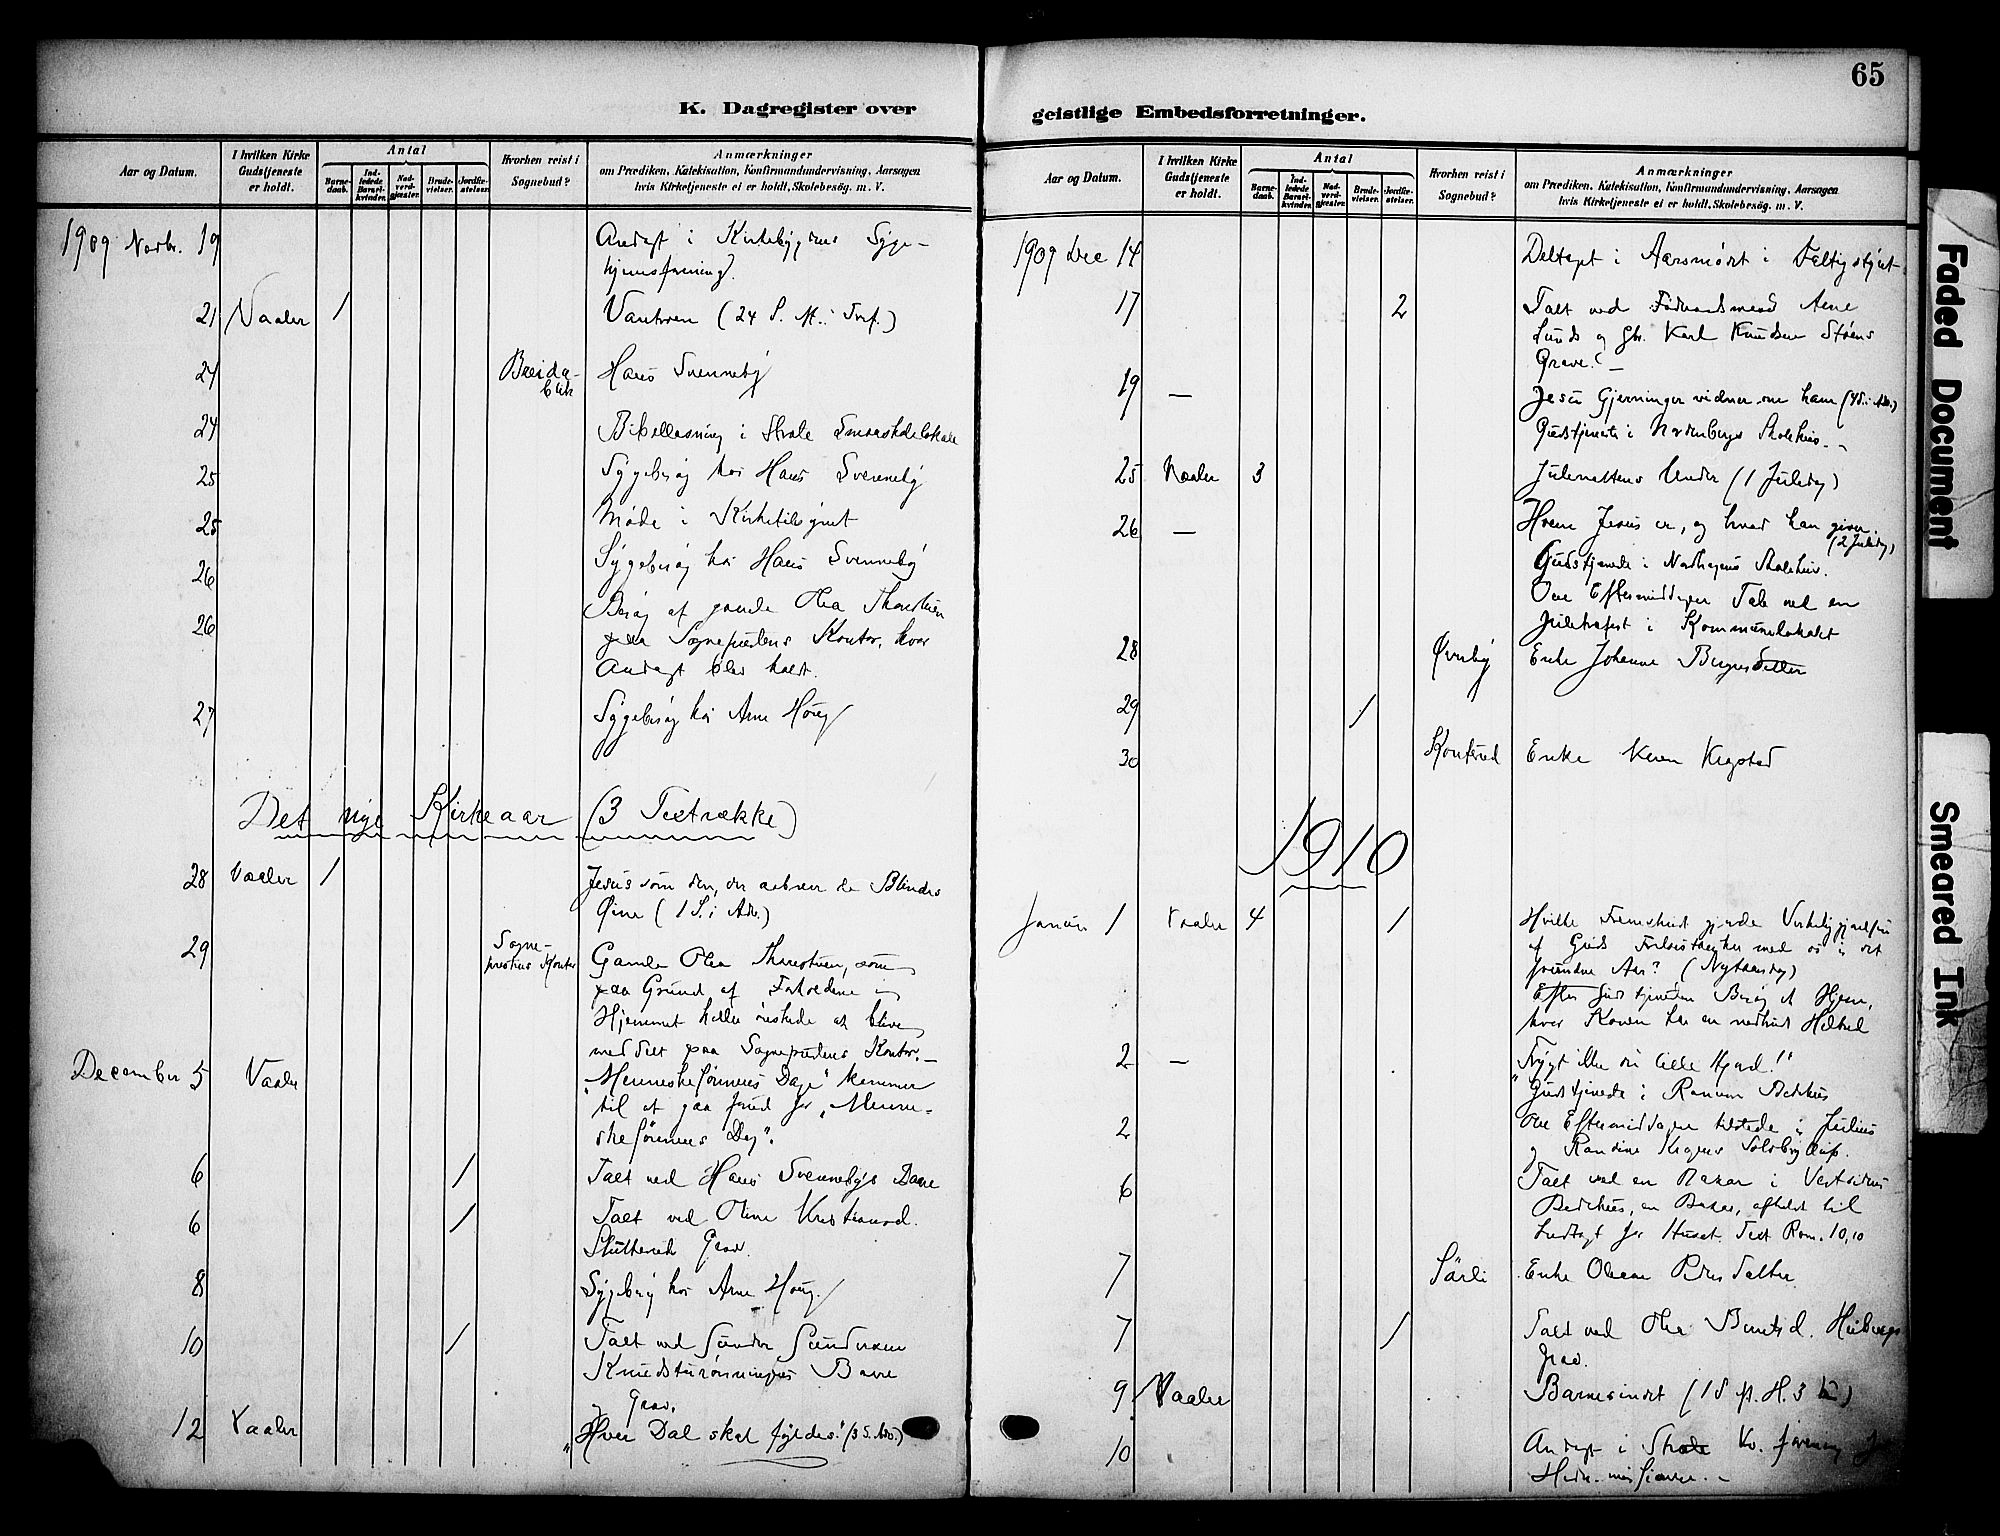 65
K. Dagregister over
geistlige Embedsforretninger.
Aar og Datum.
I hvilken Kirke Gudstjeneste er holdt.
Antal
Barne-daab.
Ind-ledede Barsel-kvinder.
Nad-verd-gjæster.
Brude-vielser.
Jordfæ-stelser.
Hvorhen reist i Sognebud?
Anmærkninger
om Prædiken, Katekisation, Konfirmandundervisning, Aarsagen
hvis Kirketjeneste ei er holdt, Skolebesøg. m. V.
1909 Novbr. 19 Andagt i Kirkebygdens Syge-
hjemsforening.
21 Vaaler 1 Vantroen (24 S. e. Tref.)
24 Breida-
blik Hans Svenneby
24 Bibellæsning i Skole Småskolelokale
25 Sygebesøg hos Hans Svenneby
25 Møde i Kirketilsynet
26 Sygebesøg hos Hans Svenneby
26 Besøg af gamle Olea
paa Sogneprestens Kontor, hvor
Andagt blev holdt.
27 Sygebesøg hos Arne Houg
Det nye Kirkeaar (3 Textrække)
28 Vaaler 1 Jesus som den, der aabner de Blindes
Øine (1 S. i Adv.)
29 Sogne-
prestens Kontor Gamle Olea som
paa Grund af Forholdene i
Hjemmet heller ønskede at blive
paa Sogneprestens Kontor. –
December 5 Vaaler „Menneskesønnens Dage" kommer
til at gaa forud for „Menne-
skesønnens Dag".
6 1 Talt ved Hans Svennebys Baare
6 1 Talt ved Oline Kristiansd.
Grav.
8 Sygebesøg hos Arne Houg.
10 1 Talt ved Gunder Gundersen
Baare
og Grav.
12 Vaaler „Hver Dal skal fyldes." (3 S. Adv.)
Aar og Datum.
I hvilken Kirke Gudstjeneste er holdt.
Antal
Barne-daab.
Ind-ledede Barsel-kvinder.
Nad-verd-gjæster.
Brude-vielser.
Jordfæ-stelser.
Hvorhen reist i Sognebud?
Anmærkninger
om Prædiken, Katekisation, Konfirmandundervisning, Aarsagen
hvis Kirketjeneste ei er holdt, Skolebesøg. m. V.
1909 Dec 14 Deltaget i Aarsmødet i
17 2 Talt ved Arne
Lunds og Karl Knudsen Støens
Grave. –
19 — Jesu Gjerninger vidner om ham (4 S. i Adv.)
Gudstjeneste i Nordenbergs Skolehus. –
25 Vaaler 3 Julenattens Under (1 Juledag)
26 — Hvem Jesus er, og hvad han giver.
(2 Juledag)
Gudstjeneste i Nordhagens Skolehus.
Om Eftermiddagen Tale ved en
Juletræfest i Kommunelokalet
28 Øverby Enke Johanne
29 1
30 Enke Karen
1910
Januar 1 Vaaler 4 1 Hvilke Fremskridt gjorde Virkeliggjørelsen
af Guds Frelsestanker med os i det
svundne Aar? (Nytaarsdag)
Efter Gudstjenesten Besøg et Hjem,
hvor Konen
2 — „Frygt ikke du lille Hjord!"
Gudstjeneste i Bedehus
2 Om Eftermiddagen tilstede i Julius
og Randine Sølvbryllup.
6 Talt ved en Bazar i Vestsidens
Bedehus, en Bazar, afholdt til
Indtægt for Huset. Text Rom. 10,10
7 Sörli Enke Oleane Pedersdatter
7 1 Talt ved Olea Berntsd.
Grav.
9 Vaaler Barnesindet (1 S. e. H. 3 K.)
10 Andagt i Kv. forening
Faded Document
Smeared Ink